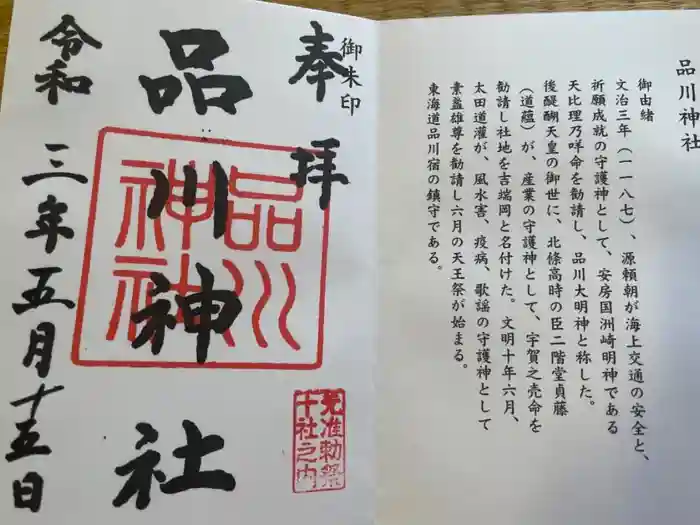 品川神社
御由緒
文治三年(一一八七)、源頼朝が海上交通の安全と、
祈願成就の守護神として、安房国洲崎明神である
天比理乃咩命を勧請し、品川大明神と称した。
後醍醐天皇の御世に、北條高時の臣二階堂貞藤
(道蘊)が、産業の守護神として、宇賀之売命を
勧請し社地を吉端岡と名付けた。文明十年六月、
太田道灌が、風水害、疫病、歌謡の守護神として
素盞雄尊を勧請し六月の天王祭が始まる。
東海道品川宿の鎮守である。
御朱印
奉拝
品川神社
令和三年五月十五日
品川
神社
准勅祭
十社之内